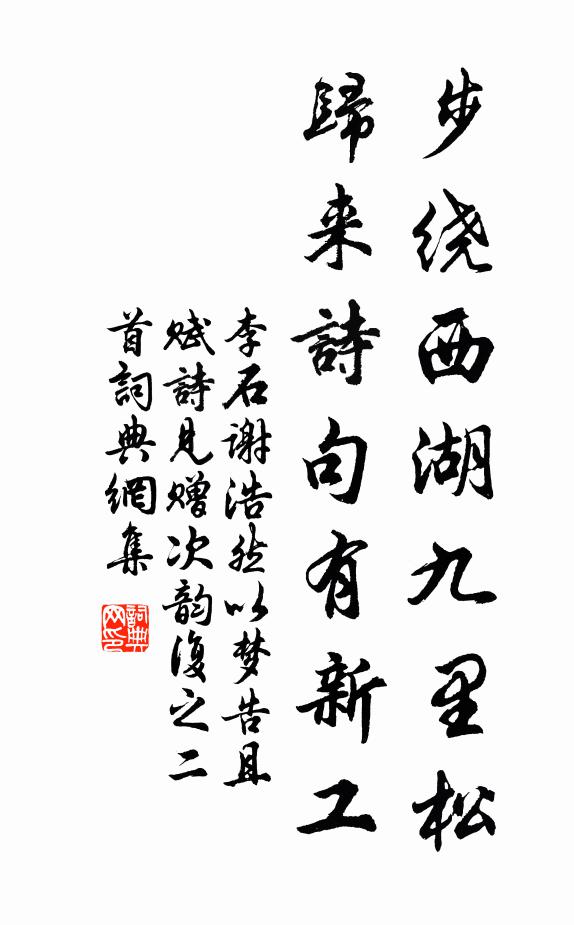 步绕西湖九里松
歸来詩句有新工
李石谢浩然以梦告且
赋詩見赠次韵復之二
首詞典網集
詞典
网印